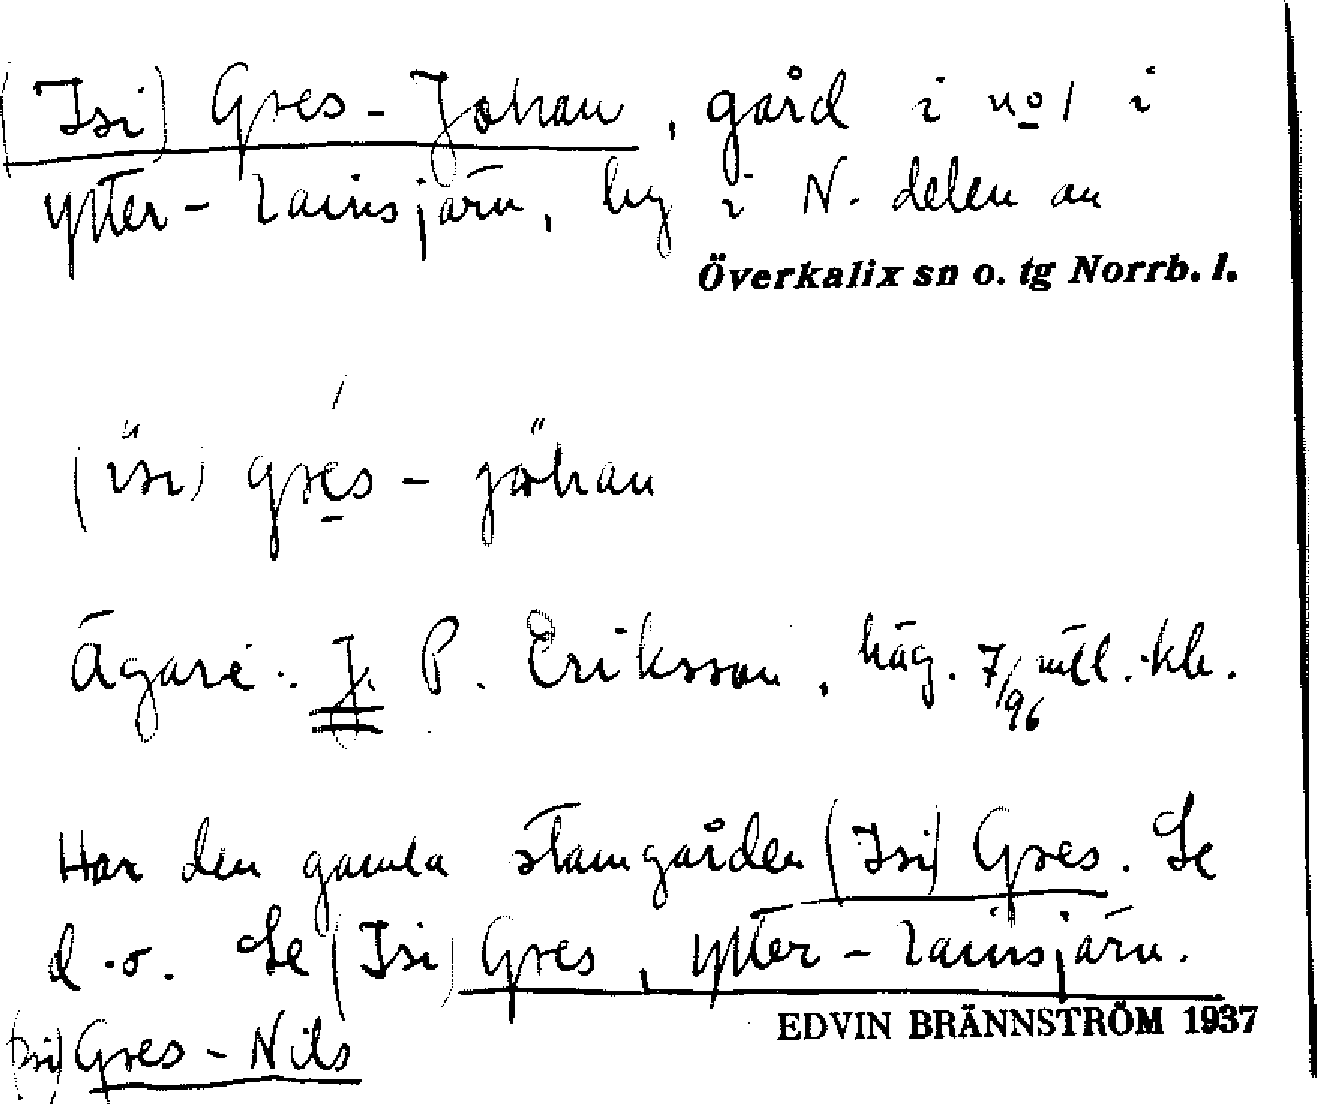 (Isi) Gres-Johan, gård i nº 1 i
Ytter-Lainsjärv, by i N. delen av
Överkalix sn o. tg Norrb. l.
(isi) gres - jöhan
Ägare: J. P. Eriksson, häg. 7/96 mtl. kr.
Har den gamla stamgården (Isi) Gres. Se
d.o. Se (Isi) Gres, Ytter-Lainsjärv.
EDVIN BRÄNNSTRÖM 1937
(Isi) Gres-Nils